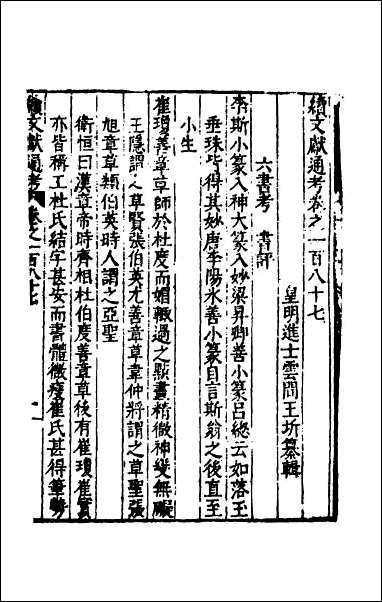 續文獻通考卷之一百八十七
皇明進士雲間王圻纂輯
六書考　書評
李斯小篆入神大篆入妙梁昇卿善小篆呂總云如落玉
垂珠皆得其妙唐李陽氷善小篆自言斯翁之後直至
小生
崔瑗善章草師於杜度而媚趣過之點畫精微神變無礙
王隱謂之草賢張伯英尤善章草韋仲將謂之草聖張
旭章草類伯英時人謂之亞聖
衛恒曰漢章帝時齊相杜伯度善章草後有崔瑗崔寔
亦皆稱工杜氏結字甚安而書體微瘦崔氏甚得筆勢
續文獻通考　卷之一百八十七　一